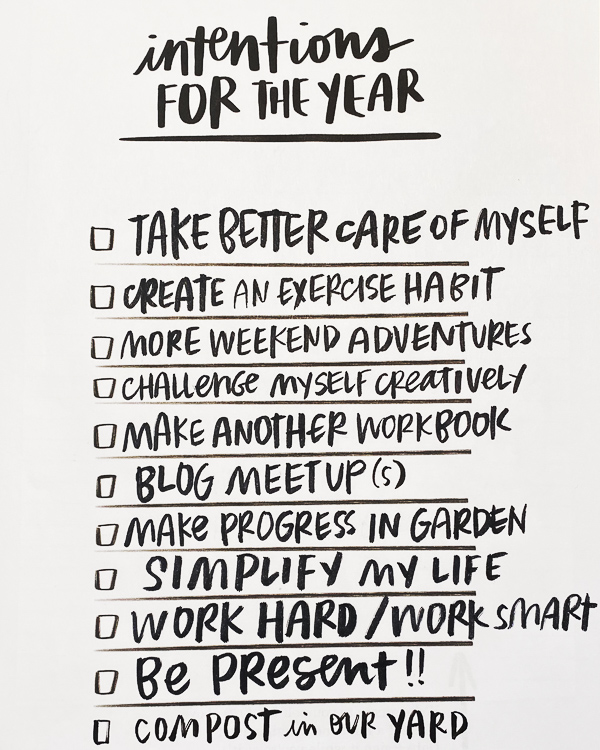 intentions
FOR THE YEAR
TAKE BETTER CARE OF MYSELF
CREATE AN EXERCISE HABIT
MORE WEEKEND ADVENTURES
CHALLENGE MYSELF CREATIVELY
MAKE ANOTHER WORKBOOK
BLOG MEETUP(S)
MAKE PROGRESS IN GARDEN
SIMPLIFY MY LIFE
WORK HARD / WORK SMART
Be PResent!!
COMPOST in OUR YARD